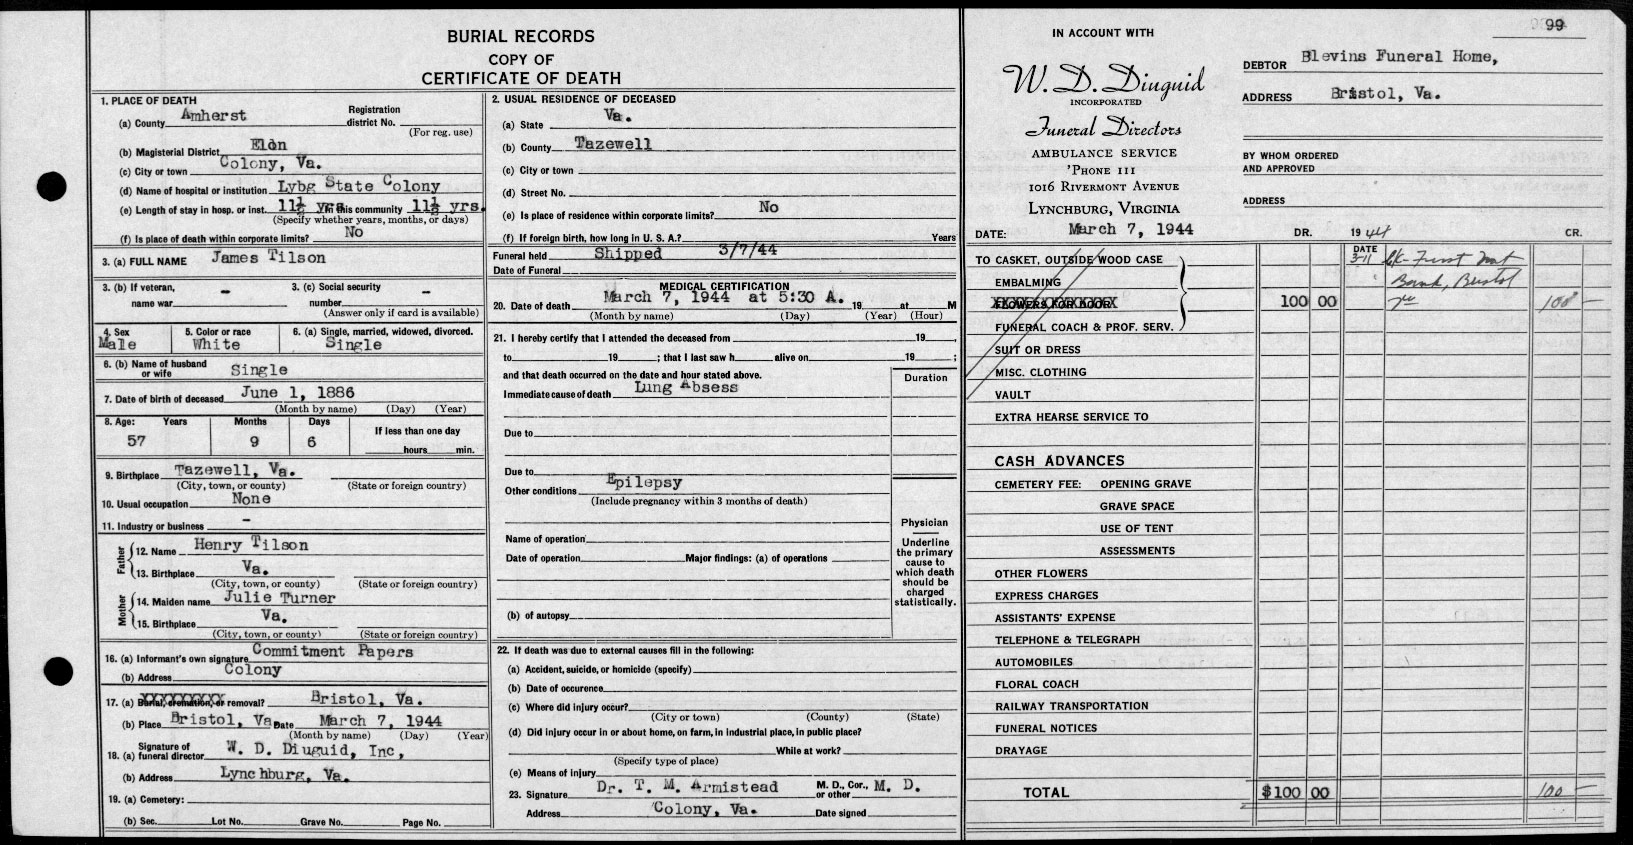 BURIAL RECORDS
COPY OF
CERTIFICATE OF DEATH
1. PLACE OF DEATH
(a) County Amherst Registration district No.
(For reg. use)
(b) Magisterial District Elon
(c) City or town Colony, Va.
(d) Name of hospital or institution Lybg State Colony
(e) Length of stay in hosp. or inst. 11½ yrs. In this community 11½ yrs.
(Specify whether years, months, or days)
(f) Is place of death within corporate limits? No
3. (a) FULL NAME James Tilson
3. (b) If veteran, name war - 3. (c) Social security number -
(Answer only if card is available)
4. Sex Male 5. Color or race White 6. (a) Single, married, widowed, divorced. Single
6. (b) Name of husband or wife Single
7. Date of birth of deceased June 1, 1886
(Month by name) (Day) (Year)
8. Age: Years Months Days If less than one day
57 9 6 hours min.
9. Birthplace Tazewell, Va.
(City, town, or county) (State or foreign country)
10. Usual occupation None
11. Industry or business -
Father
12. Name Henry Tilson
13. Birthplace Va.
(City, town, or county) (State or foreign country)
Mother
14. Maiden name Julie Turner
15. Birthplace Va.
(City, town, or county) (State or foreign country)
16. (a) Informant's own signature Commitment Papers
(b) Address Colony
17. (a) Burial, cremation, or removal? Bristol, Va.
(b) Place Bristol, Va Date March 7, 1944
(Month by name) (Day) (Year)
18. (a) Signature of funeral director W. D. Diuguid, Inc,
(b) Address Lynchburg, Va.
19. (a) Cemetery:
(b) Sec. Lot No. Grave No. Page No.
2. USUAL RESIDENCE OF DECEASED
(a) State Va.
(b) County Tazewell
(c) City or town
(d) Street No.
(e) Is place of residence within corporate limits? No
(f) If foreign birth, how long in U. S. A.? Years
Funeral held Shipped 3/7/44
Date of Funeral
MEDICAL CERTIFICATION
20. Date of death March 7, 1944 at 5:30 A. 19 at M
(Month by name) (Day) (Year) (Hour)
21. I hereby certify that I attended the deceased from 19 ,
to 19 ; that I last saw h alive on 19 ;
and that death occurred on the date and hour stated above.
Duration
Immediate cause of death Lung Absess
Due to
Due to
Other conditions Epilepsy
(Include pregnancy within 3 months of death)
Name of operation
Date of operation Major findings: (a) of operations
(b) of autopsy
Physician
Underline the primary cause to which death should be charged statistically.
22. If death was due to external causes fill in the following:
(a) Accident, suicide, or homicide (specify)
(b) Date of occurence
(c) Where did injury occur?
(City or town) (County) (State)
(d) Did injury occur in or about home, on farm, in industrial place, in public place?
While at work?
(Specify type of place)
(e) Means of injury
23. Signature Dr. T. M. Armistead M. D., Cor., or other M. D.
Address Colony, Va. Date signed
99
IN ACCOUNT WITH
W. D. Diuguid
INCORPORATED
Funeral Directors
AMBULANCE SERVICE
'PHONE 111
1016 RIVERMONT AVENUE
LYNCHBURG, VIRGINIA
DATE: March 7, 1944
DEBTOR Blevins Funeral Home,
ADDRESS Bristol, Va.
BY WHOM ORDERED AND APPROVED
ADDRESS
DR. 1944 CR.
TO CASKET, OUTSIDE WOOD CASE
DATE
3-11 Ck- First Nat
EMBALMING
Bank, Bristol
FLOWERS FOR DOOR 100 00 Va 100 -
FUNERAL COACH & PROF. SERV.
SUIT OR DRESS
MISC. CLOTHING
VAULT
EXTRA HEARSE SERVICE TO
CASH ADVANCES
CEMETERY FEE: OPENING GRAVE
GRAVE SPACE
USE OF TENT
ASSESSMENTS
OTHER FLOWERS
EXPRESS CHARGES
ASSISTANTS' EXPENSE
TELEPHONE & TELEGRAPH
AUTOMOBILES
FLORAL COACH
RAILWAY TRANSPORTATION
FUNERAL NOTICES
DRAYAGE
TOTAL $100 00 100 -